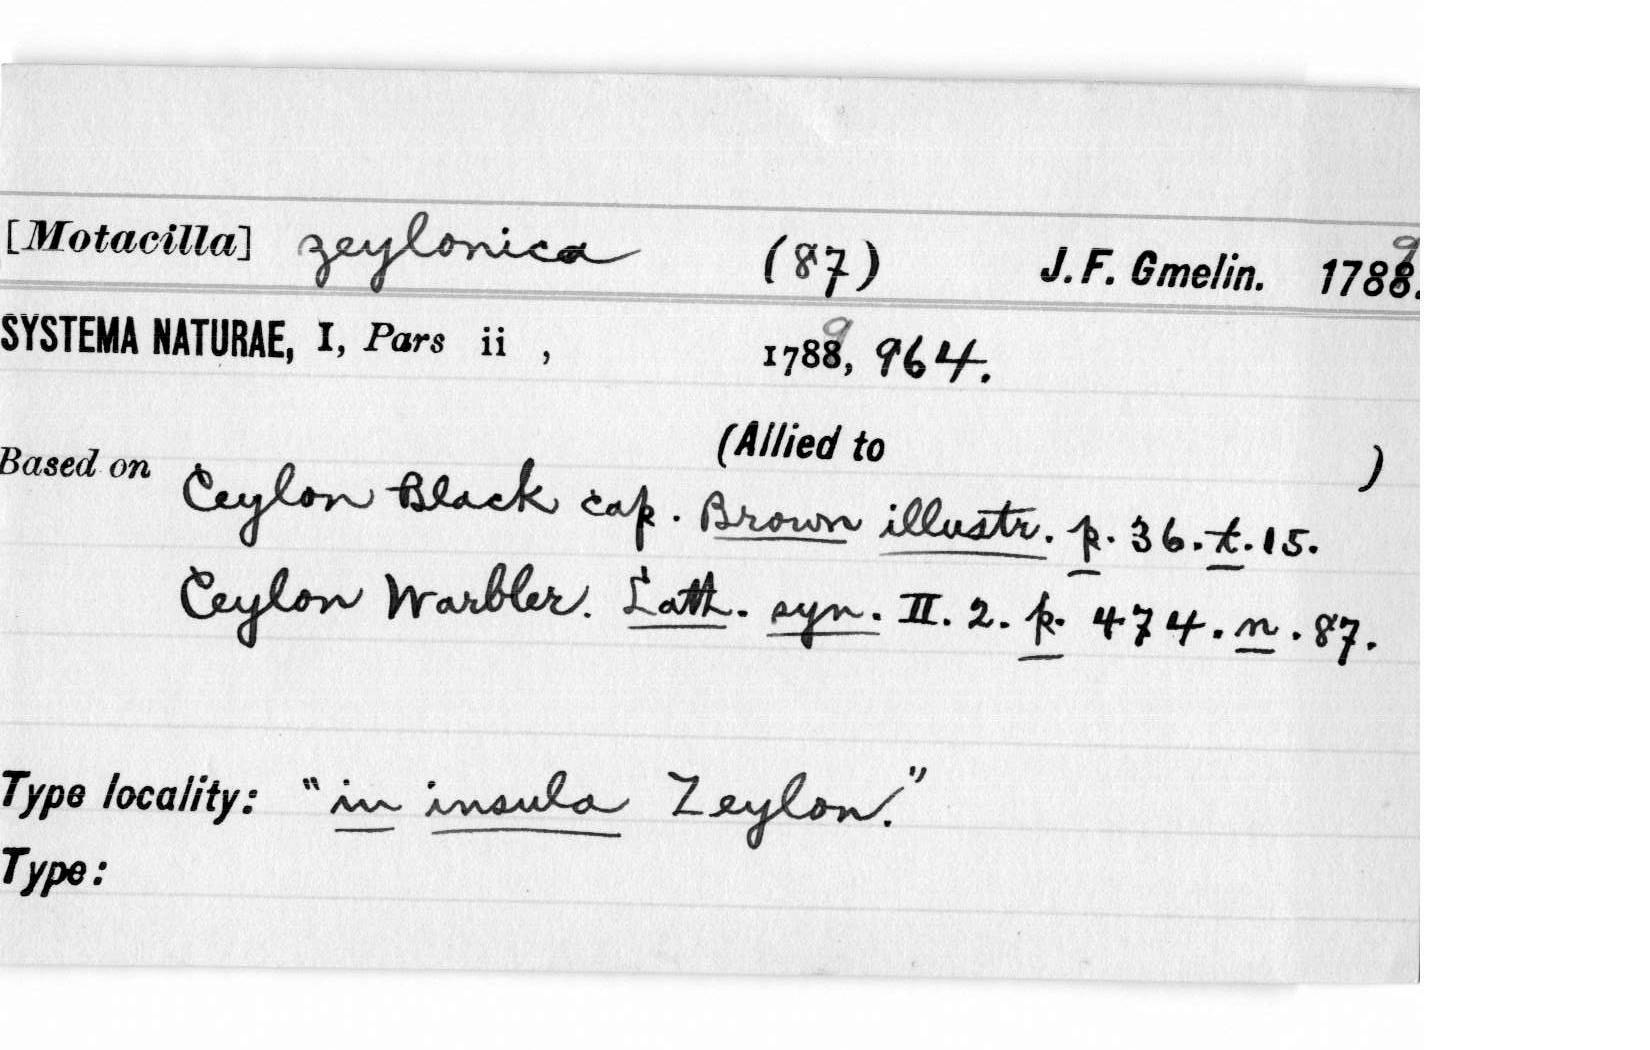 [Motacilla] zeylonica (87) J. F. Gmelin. 1788. 9
SYSTEMA NATURAE, I, Pars ii , 1788, 9 964.
(Allied to )
Based on Ceylon Black cap. Brown illustr. p. 36. t. 15.
Ceylon Warbler. Lath. syn. II. 2. p. 474. n. 87.
Type locality: "in insula Zeylon."
Type: